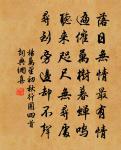 落日無情最有情
遍催萬樹暮蟬鳴
聽來咫尺無尋處
尋到旁邊却不聲
楊萬里初秋行圃四首
詞典網